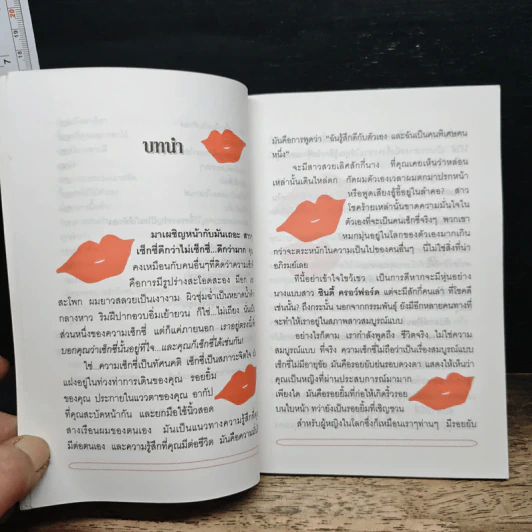 บทนำ
มาเผชิญหน้ากับมันเถอะ สาว
เซ็กซี่ดีกว่าไม่เซ็กซี่...ดีกว่ามาก
คงเหมือนกับคนอื่นๆที่คิดว่าความเซ็
คือการมีรูปร่างสะโอดสะอง มีอก
สะโพก ผมยาวสลวยเป็นเงางาม ผิวชุ่มฉ่ำเป็นหยาดน้ำ
กลางหาว ริมฝีปากอวบอิ่มเย้ายวน ก็ใช่...ไม่เถียง นั่นเป็
ส่วนหนึ่งของความเซ็กซี่ แต่ก็แค่ภายนอก เราอยู่ตรงนี้
บอกคุณว่าเซ็กซี่นั้นอยู่ที่ใจ...และคุณก็เซ็กซี่ได้เช่นกัน!
ใช่..ความเซ็กซี่เป็นทัศนคติ เซ็กซี่เป็นสภาวะจิตใจ
แฝงอยู่ในท่วงท่าการเดินของคุณ รอยยิ้ม
ของคุณ ประกายในแววตาของคุณ อากัป
ที่คุณสะบัดหน้ากัน และยกมือใช้นิ้วสอด
สางเรือนผมของตนเอง มันเป็นแนวทางความรู้สึกที่คุ
มีต่อตนเอง และความรู้สึกที่คุณมีต่อชีวิต มันคือความมั่
มันคือการพูดว่า "ฉันรู้สึกดีกับตัวเอง และฉันเป็นคนพิเศษคน
หนึ่ง"
จะมีสาวสวยเลิศสักกี่นาง ที่คุณเคยเห็นว่าหล่อน
เหล่านั้นเดินไหล่ตก กัดผมตัวเองเวลาผมตกมาปรกหน้า
หรือพูดเสียงอู้อี้อยู่ในลำคอ? สาว
โชคร้ายเหล่านั้นขาดความมั่นใจใน
ตัวเองที่จะเป็นคนเซ็กซี่จริงๆ พวกเขา
หมกมุ่นอยู่ในโลกของตัวเองมากเกิน
กว่าจะตระหนักในความเป็นไปของคนอื่นๆ นี่ไม่ใช่สิ่งที่น่า
อภิรมย์เลย
ทีนี้อย่าเข้าใจไขว้เขว เป็นการดีหากจะมีหุ่นอย่าง
นางแบบสาว ซินดี้ ครอว์ฟอร์ด แต่จะมีสักกี่คนเล่า ที่โชคดี
เช่นนั้น? ถึงกระนั้น นอกจากกรรมพันธุ์ ยังมีอีกหลายคนทางที่
จะทำให้เราอยู่ในสภาพสาวสมบูรณ์แบบ
อย่างไรก็ตาม เรากำลังพูดถึง ชีวิตจริง..ไม่ใช่ความ
สมบูรณ์แบบ ที่จริง ความเซ็กซี่ไม่ถือว่าเป็นเรื่องสมบูรณ์แบบ
เซ็กซี่ไม่มีอายุขัย มันคือรอยยับย่นรอบดวงตา แสดงให้เห็นว่า
คุณเป็นหญิงที่ผ่านประสบการณ์มามาก
เพียงใด มันคือรอยยิ้มที่ก่อให้เกิดริ้วรอย
บนใบหน้า ทว่ายังเป็นรอยยิ้มที่เชิญชวน
สำหรับผู้หญิงในโลกซึ่งก็เหมือนเราๆท่านๆ มีรอยยับ